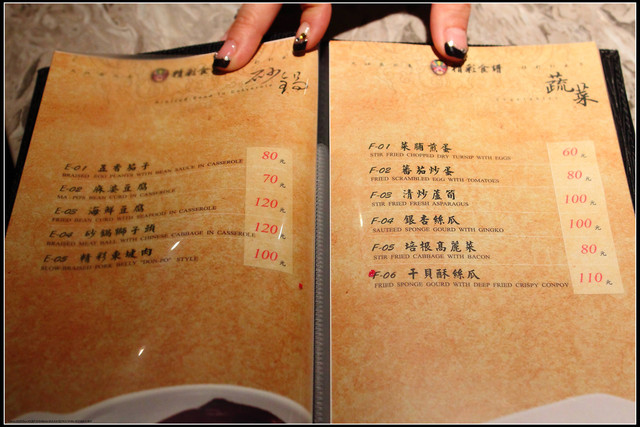 精彩食譜
砂鍋
E-01 孟香茄子 80元
BRAISED EGG PLANTS WITH BEAN SAUCE IN CASSEROLE
E-02 麻婆豆腐 70元
MA-POR BEAN CURD IN CASSEROLE
E-03 海鮮豆腐 120元
FRIED BEAN CURD WITH SEAFOOD IN CASSEROLE
E-04 砂鍋獅子頭 120元
BRAISED MEAT BALL WITH CHINESE CABBAGE IN CASSEROLE
E-05 精彩東坡肉 100元
SLOW-BRAISED PORK BELLY "DON-PO" STYLE
精彩食譜
蔬菜
Vegetables
F-01 菜脯煎蛋 60元
STIR FRIED CHOPPED DRY TURNIP WITH EGGS
F-02 蕃茄炒蛋 80元
FRIED SCRAMBLED EGG WITH TOMATOES
F-03 清炒蘆筍 100元
STIR FRIED FRESH ASPARAGUS
F-04 銀杏絲瓜 100元
SAUTEED SPONGE GOURD WITH GINGKO
F-05 培根高麗菜 80元
STIR FRIED CABBAGE WITH BACON
F-06 干貝酥絲瓜 110元
FRIED SPONGE GOURD WITH DEEP FRIED CRISPY CONPOY